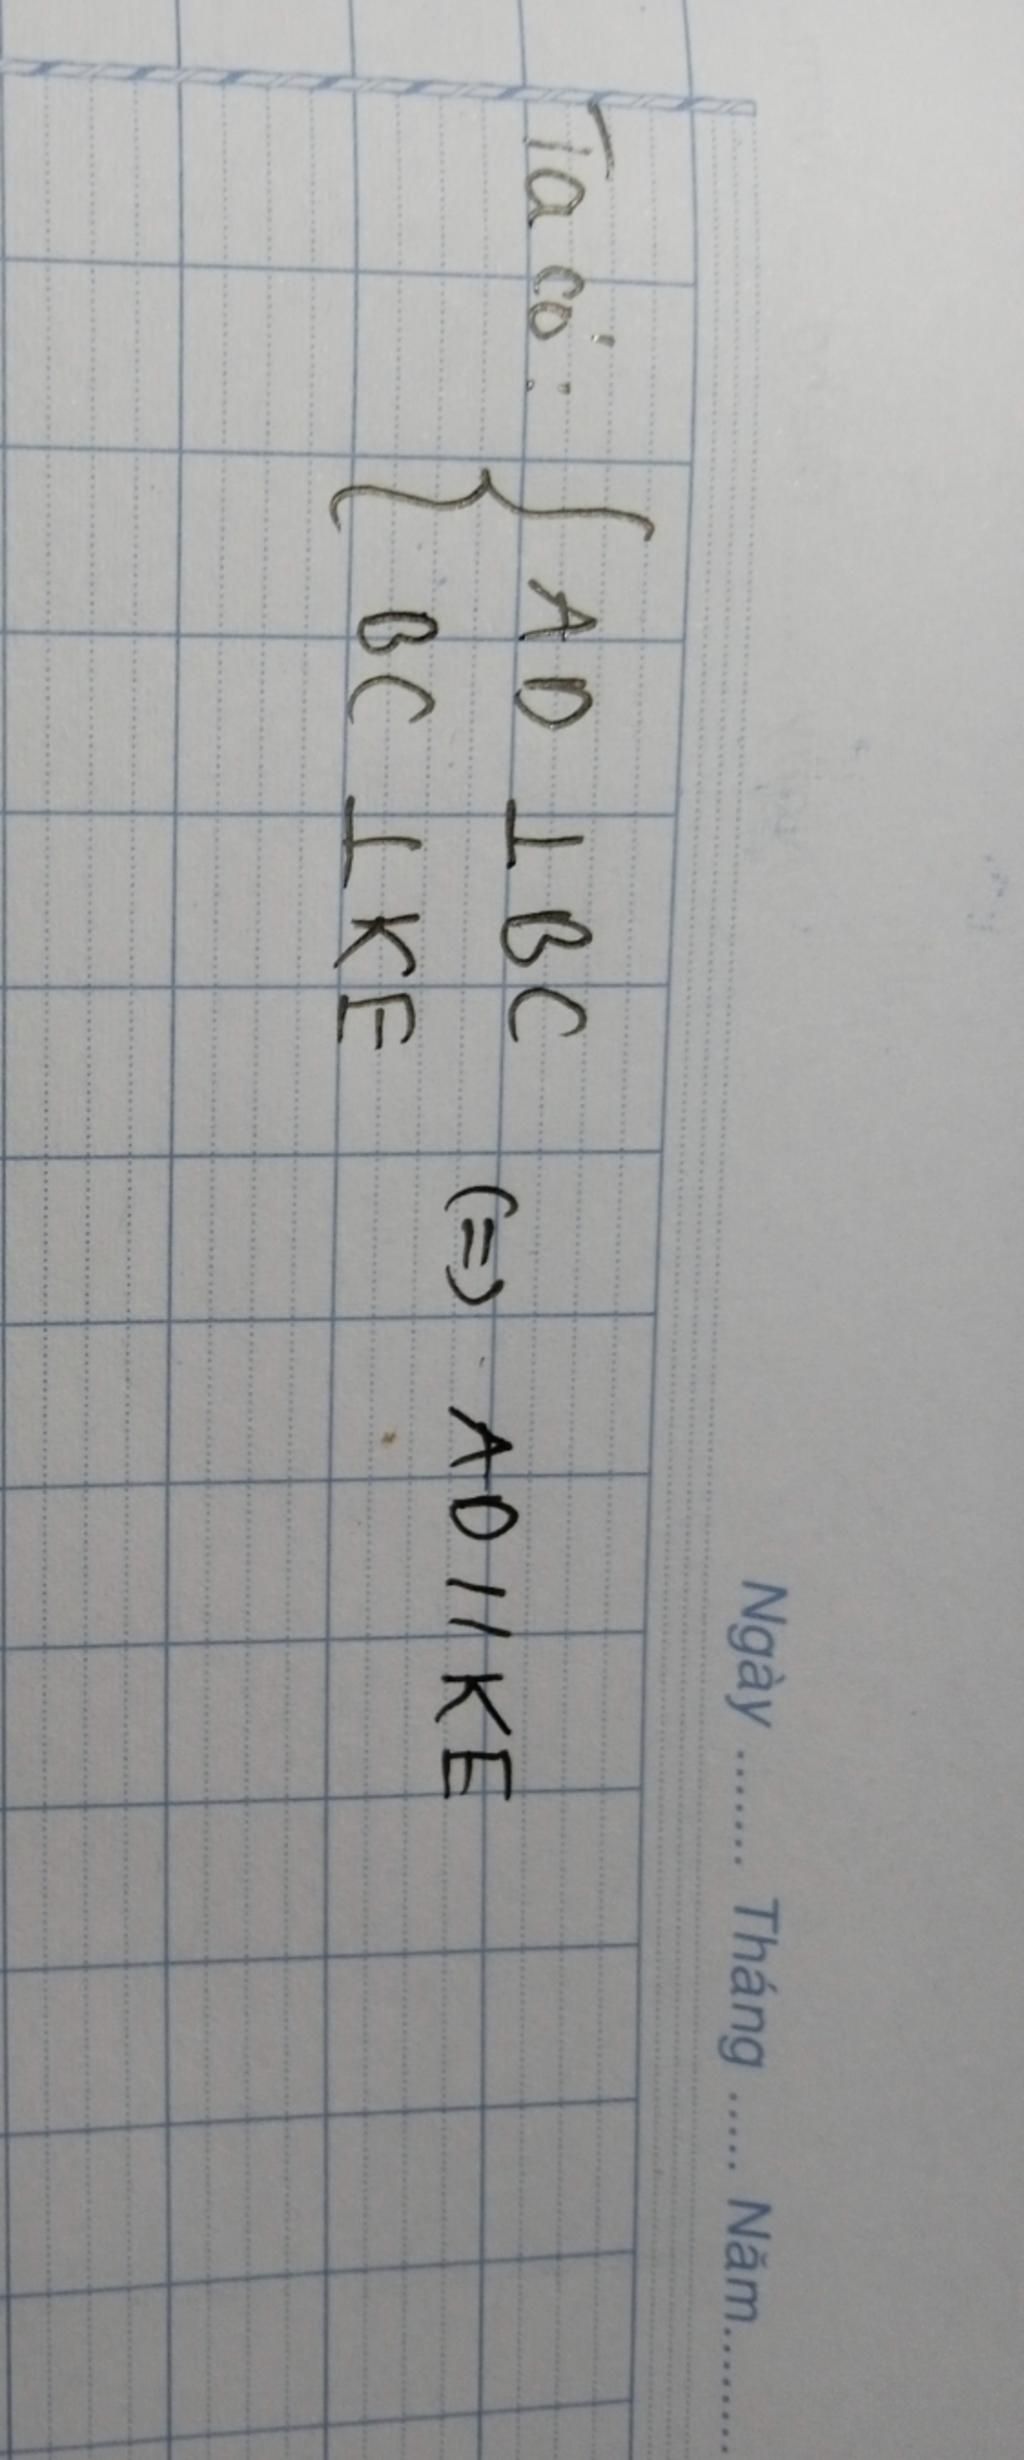 Ngày ....... Tháng ..... Năm.........
Ta có: { AD ⊥ BC
BC ⊥ KE
(=) AD // KE